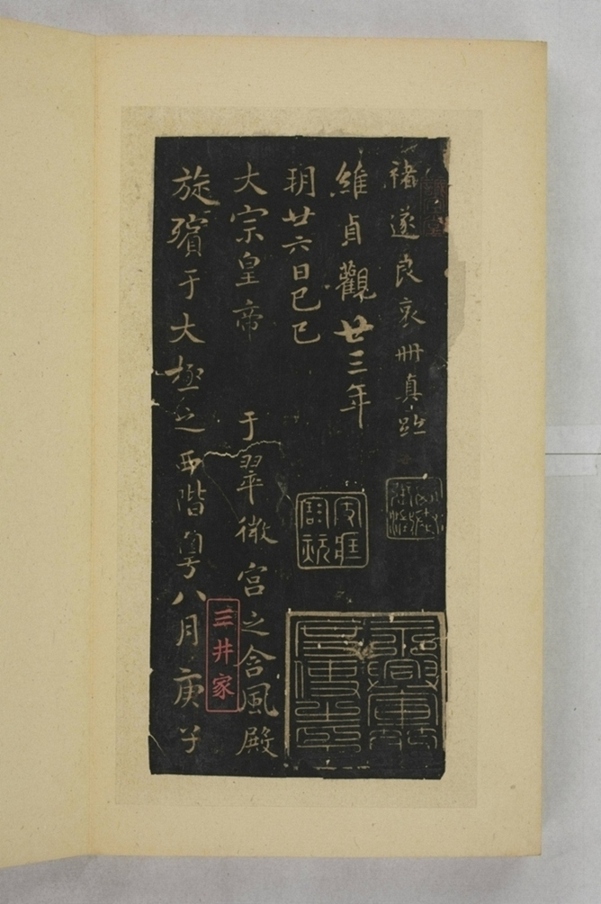 褚遂良哀冊真跡
維貞觀廿三年
玥廿六日己巳
大宗皇帝 于翠微宮之含風殿
旋殯于大極之西階粵八月庚子
三井家